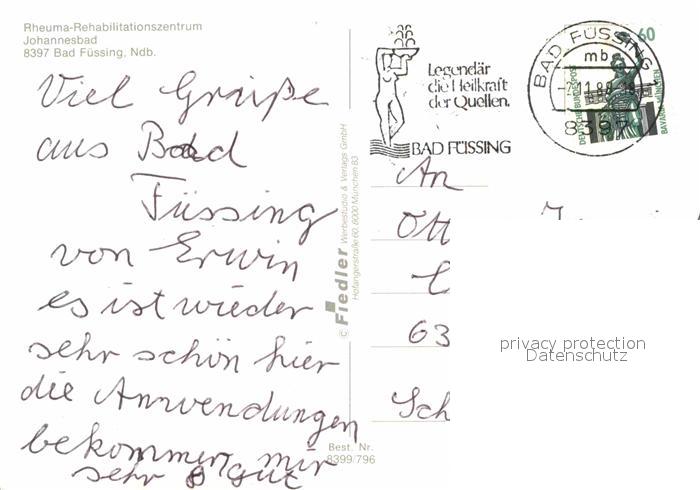 Rheuma-Rehabilitationszentrum
Johannesbad
8397 Bad Füssing, Ndb.
Viel Grüße
aus Bad
Füssing
von Erwin
es ist wieder
sehr schön hier
die Anwendungen
bekommen mir
sehr gut
Best. Nr.
8399/796
© Fiedler Werbestudio & Verlags GmbH
Hofangerstraße 60, 8000 München 83
Legendär
die Heilkraft
der Quellen.
BAD FÜSSING
BAD FÜSSING
mb
8397
60
DEUTSCHE BUNDESPOST
BAVARIA MÜNCHEN
An
Ott
63
Sch
privacy protection
Datenschutz